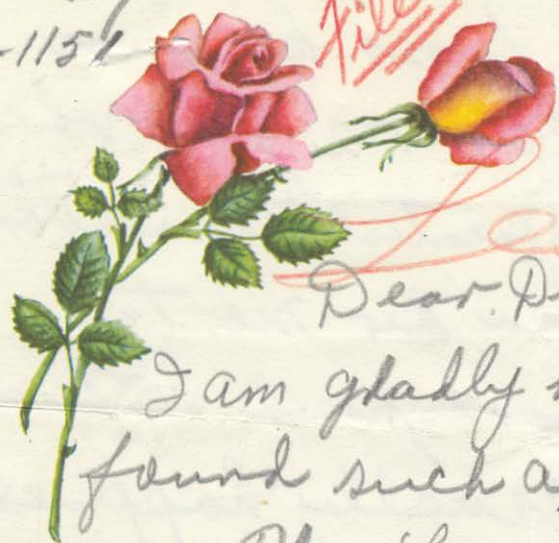 -1151
File
Dear. D
I am gladly
found such a